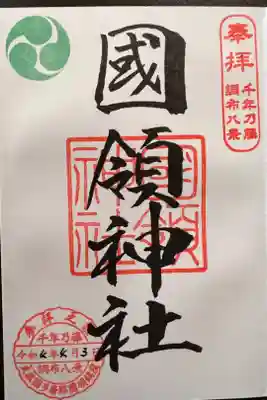 奉拝
千年乃藤
調布八景
國領神社
國領
神社
参拝之
千年乃藤
令和6年6月3日
調布八景